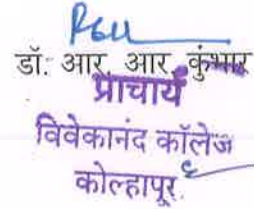 डॉ. आर. आर. कुंभार
प्राचार्य
विवेकानंद कॉलेज
कोल्हापूर.